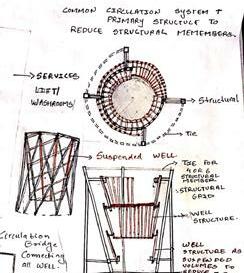 COMMON CIRCULATION SYSTEM +
PRIMARY STRUCTURE TO
REDUCE STRUCTURAL MEMEMBERS.
SERVICES
LIFT/
WASHROOMS/
Structural
Tie
Suspended WELL
TIE FOR
STRUCTURAL
MEMBER
STRUCTURAL
GRID
WELL
STRUCTURE.
Circulation
Bridge
Connecting
all WELL.
WELL
STRUCTURE AS
SUSPENDED
VOLUMES TO